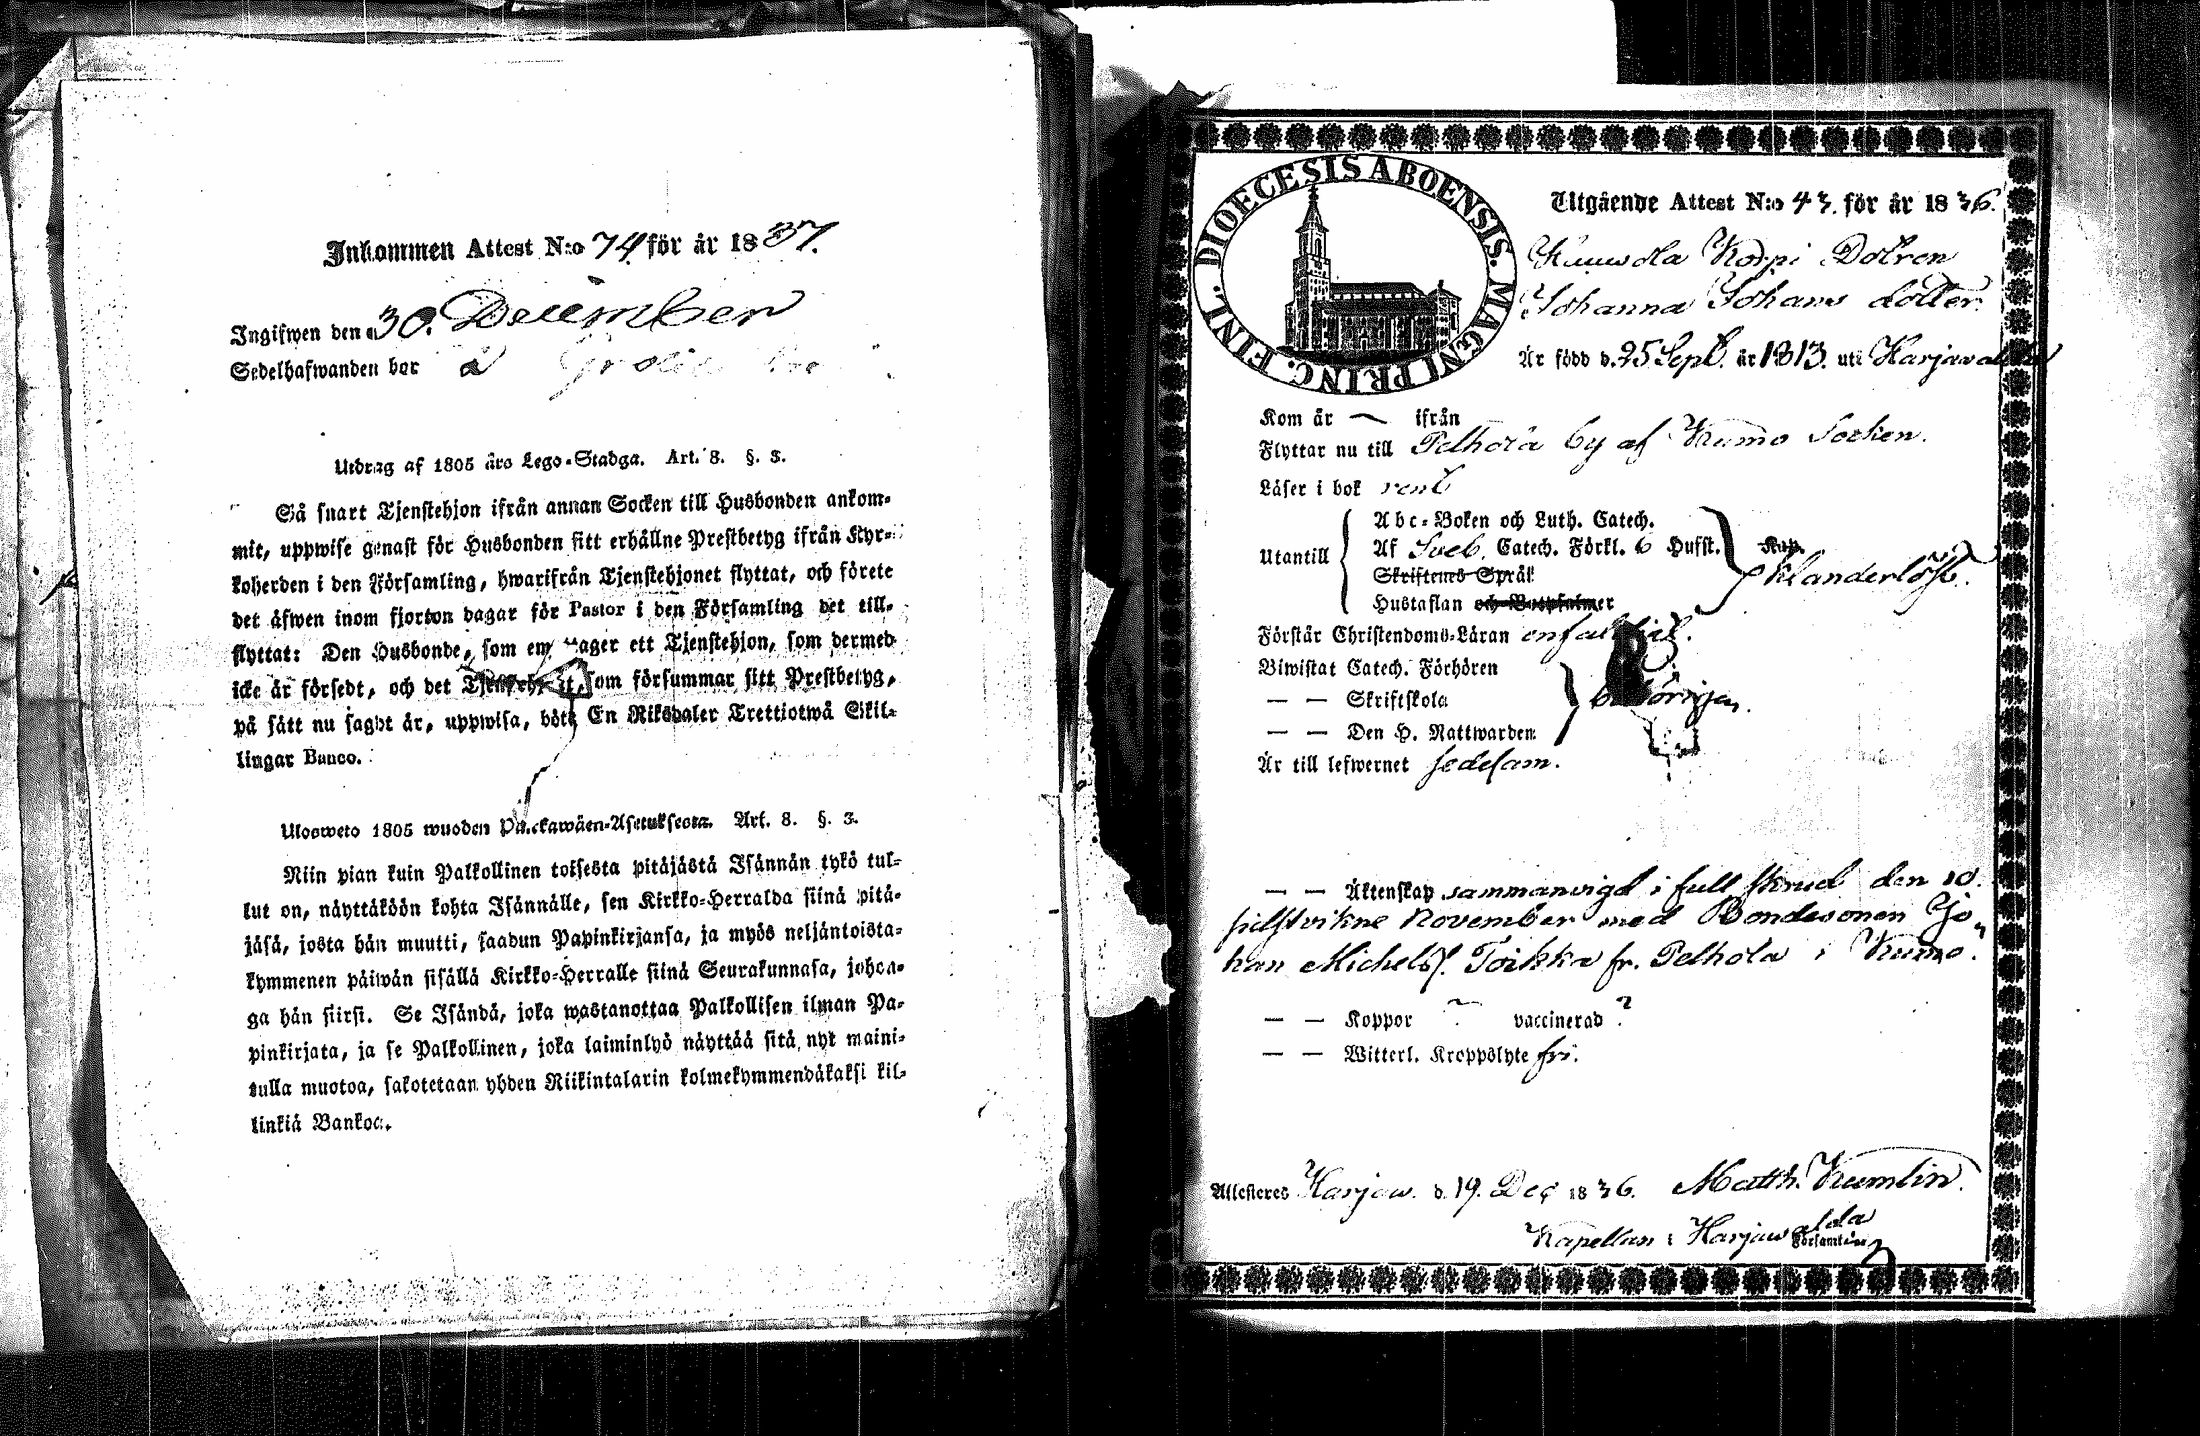 Inkommen Attest N:o 74 för år 1837.
Ingifwen den 30. December
Sedelhafwanden bor å
Utdrag af 1805 års Lego-Stadga. Art. 8. §. 3.
Så snart Tjenstehjon ifrån annan Socken till Husbonden ankom-
mit, uppwise genast för Husbonden sitt erhållne Prestbetyg ifrån Kyr-
koherden i den Församling, hwarifrån Tjenstehjonet flyttat, och förete
det äfwen inom fjorton dagar för Pastor i den Församling det till-
flyttat: Den Husbonde, som emottager ett Tjenstehjon, som dermed
icke är försedt, och det Tjenstehjon, som försummar sitt Prestbetyg,
på sätt nu sagdt är, uppwisa, böte En Riksdaler Trettiotwå Skil-
lingar Banco.
Ulosweto 1805 wuoden Palckawäen-Asetuksesta. Art. 8. §. 3.
Niin pian kuin Palkollinen toisesta pitäjästä Isännän tykö tul-
lut on, näyttäköön kohta Isännälle, sen Kirkko-Herralda siinä pitä-
jäsä, josta hän muutti, saadun Papinkirjansa, ja myös neljäntoista-
kymmenen päiwän sisällä Kirkko-Herralle siinä Seurakunnasa, johon-
ga hän siirsi. Se Isändä, joka wastanottaa Palkollisen ilman Pa-
pinkirjata, ja se Palkollinen, joka laiminlyö näyttää sitä, nyt maini-
tulla muotoa, sakotetaan yhden Riikintalarin kolmekymmendäkaksi kil-
linkiä Bankoa.
DIOECESIS ABOENSIS. MAGNI PRINC. FINL.
Utgående Attest N:o 43. för år 1836.
Korpi Dottren
Johanna Johans dotter.
Är född d. 25 Sept. år 1813. uti Harjawalda
Kom år — ifrån
Flyttar nu till Pelhola by af Kumo Socken.
Läser i bok rent
Utantill
Abc-Boken och Luth. Catech.
Af Sveb. Catech. Förkl. 6 Hufst.
Skriftenes Språk
Hustaflan och Botpsalmer
klanderlöst.
Förstår Christendoms-Läran enfaldigt.
Biwistat Catech. Förhören
— — Skriftskola behörigen.
— — Den H. Nattwarden
Är till lefwernet sedesam.
— — Äktenskap sammanvigd i full skrud den 10.
sidstvikne November med Bondesonen Jo-
han Michelss. Toikka fr. Pelhola i Kumo.
— — Koppor ~ vaccinerad ?
— — Witterl. Kroppslyte fri.
Attesteres Harjaw. d. 19. Dec 1836. Matth. Kumlin.
Kapellan i Harjawalda Församling